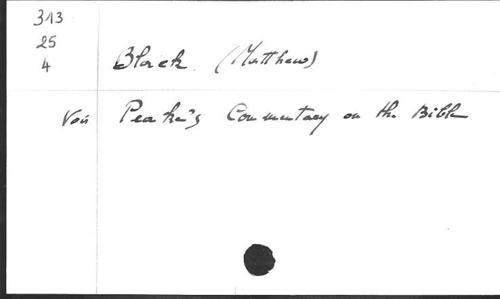 313
25
4 Black (Matthew)
Voir Peake's Commentary on the Bible